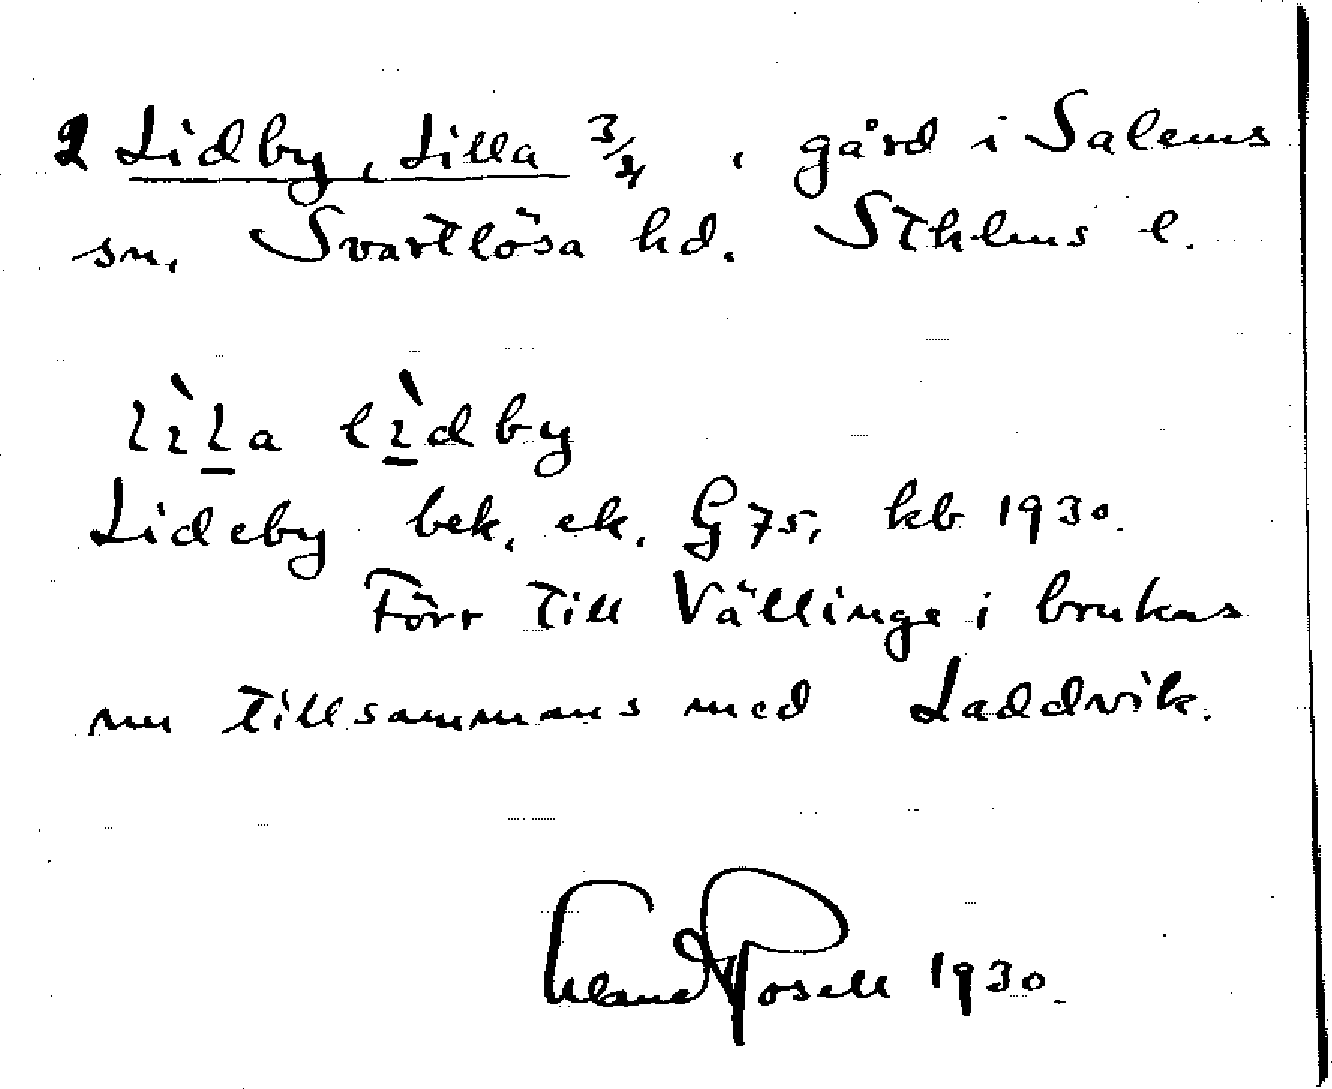 2 Lidby, Lilla 3/4, gård i Salems
sn, Svartlösa hd. Sthlms l.
lìla lìdby
Lideby bek. ek. G 75, kb 1930.
Förr till Vällinge; brukas
nu tillsammans med Laddvik.
Rosell 1930.